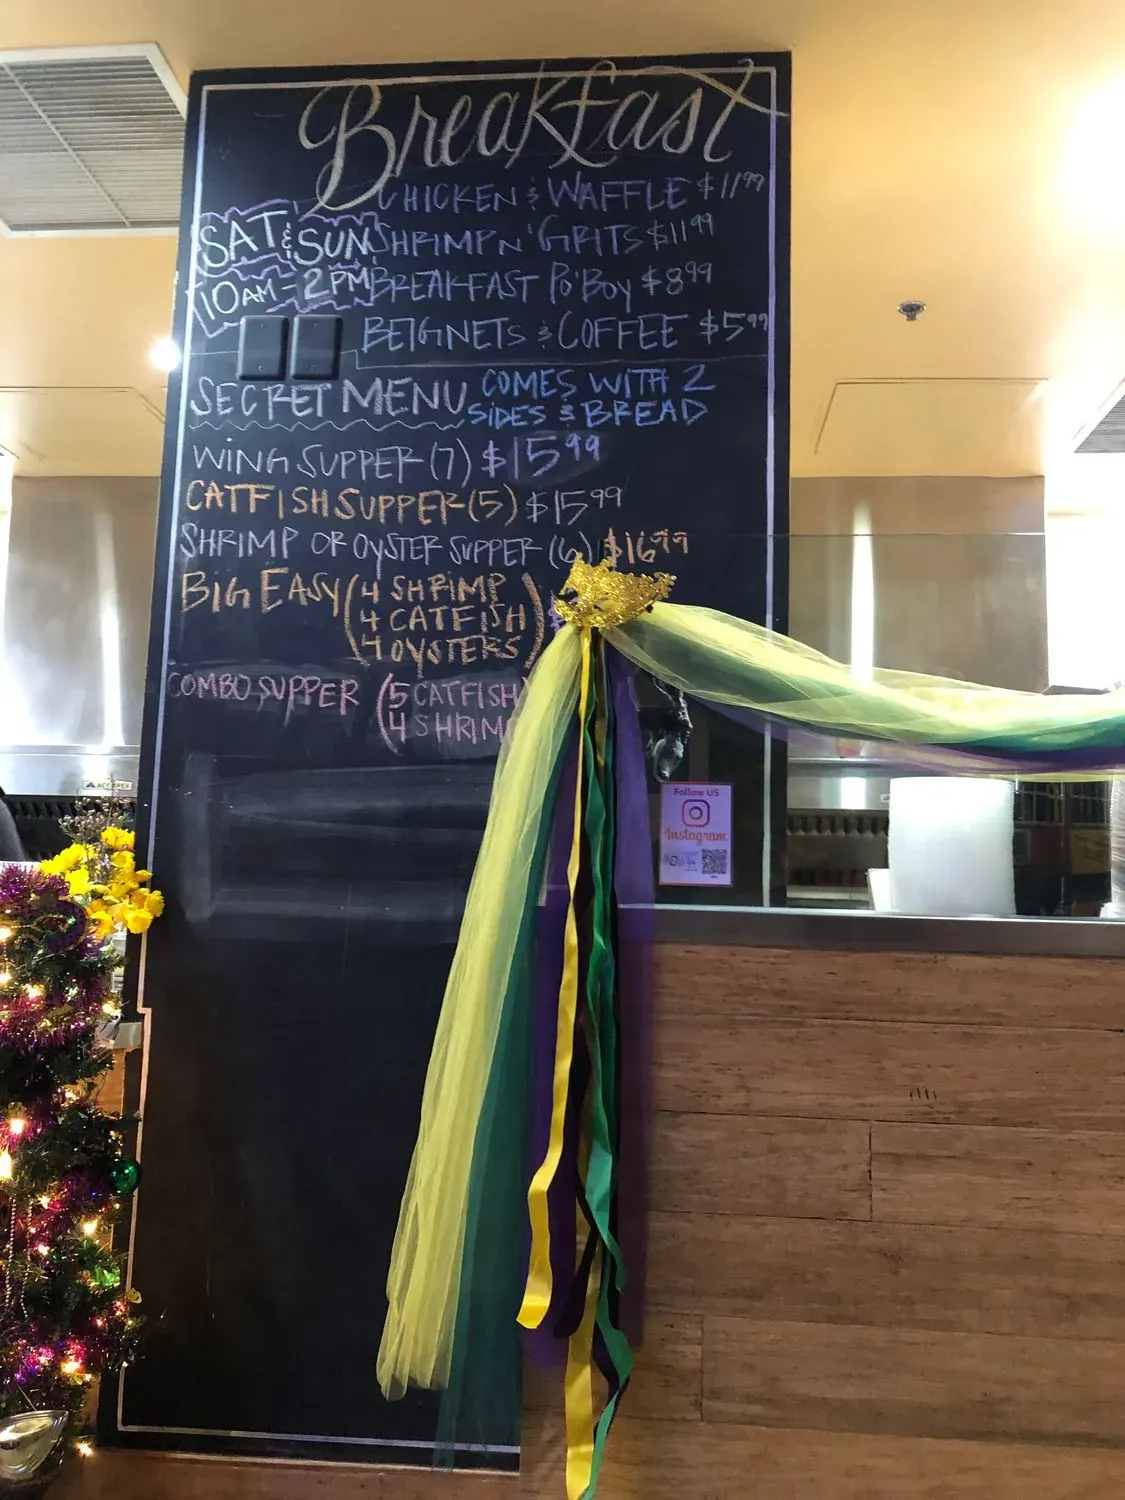 Breakfast
CHICKEN & WAFFLE $11.99
SAT & SUN
10AM-2PM
SHRIMP N' GRITS $11.99
BREAKFAST Po'Boy $8.99
BEIGNETS & COFFEE $5.99
SECRET MENU
COMES WITH 2
SIDES & BREAD
WING SUPPER (7) $15.99
CATFISH SUPPER (5) $15.99
SHRIMP OR OYSTER SUPPER (6) $16.99
BIG EASY (4 SHRIMP
4 CATFISH
4 OYSTERS)
COMBO SUPPER (5 CATFISH
4 SHRIMP
Follow US
Instagram